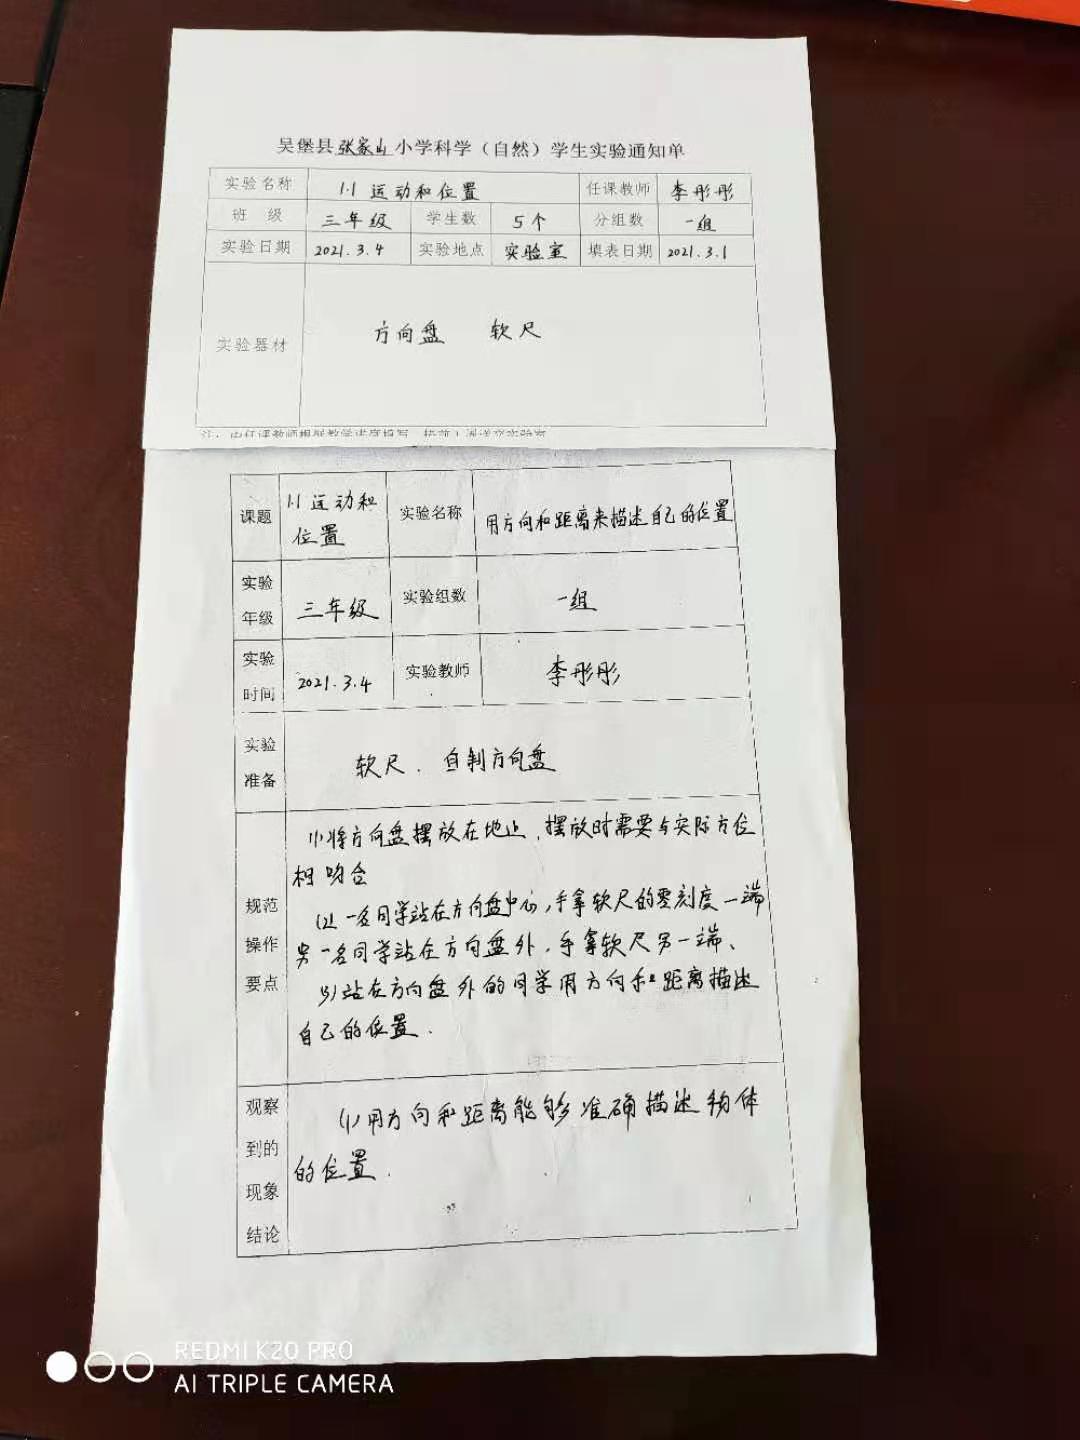 吴堡县张家山小学科学（自然）学生实验通知单
实验名称 1.1 运动和位置 任课教师 李彤彤
班 级 三年级 学生数 5个 分组数 一组
实验日期 2021.3.4 实验地点 实验室 填表日期 2021.3.1
实验器材 方向盘 软尺
课题 1.1 运动和
位置
实验名称 用方向和距离来描述自己的位置
实验
年级
三年级 实验组数 一组
实验
时间
2021.3.4 实验教师 李彤彤
实验
准备
软尺、自制方向盘
规范
操作
要点
(1)将方向盘摆放在地上，摆放时需要与实际方位
相吻合
(2)一名同学站在方向盘中心，手拿软尺的零刻度一端
另一名同学站在方向盘外，手拿软尺另一端、
(3)站在方向盘外的同学用方向和距离描述
自己的位置.
观察
到的
现象
结论
(1)用方向和距离能够准确描述物体
的位置.
REDMI K20 PRO
AI TRIPLE CAMERA